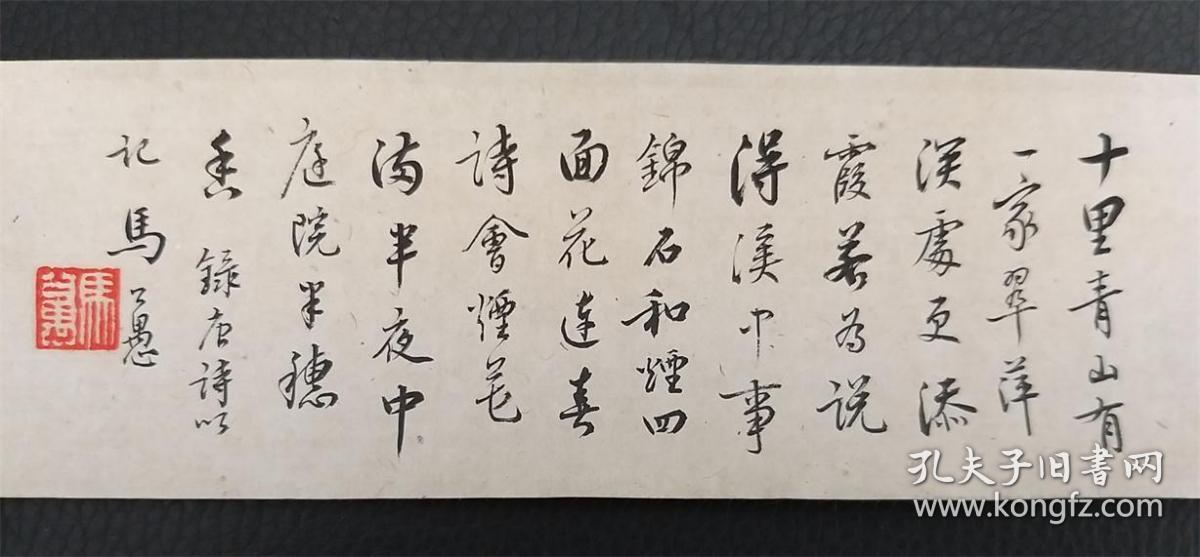 十里青山有
一家翠萍
深處更添
霞若為說
得溪中事
錦石和煙四
面花連春
詩會煙花
滿半夜中
庭院半穗
香 錄唐詩以
記 馬公愚
馬公愚
孔夫子旧书网
www.kongfz.com